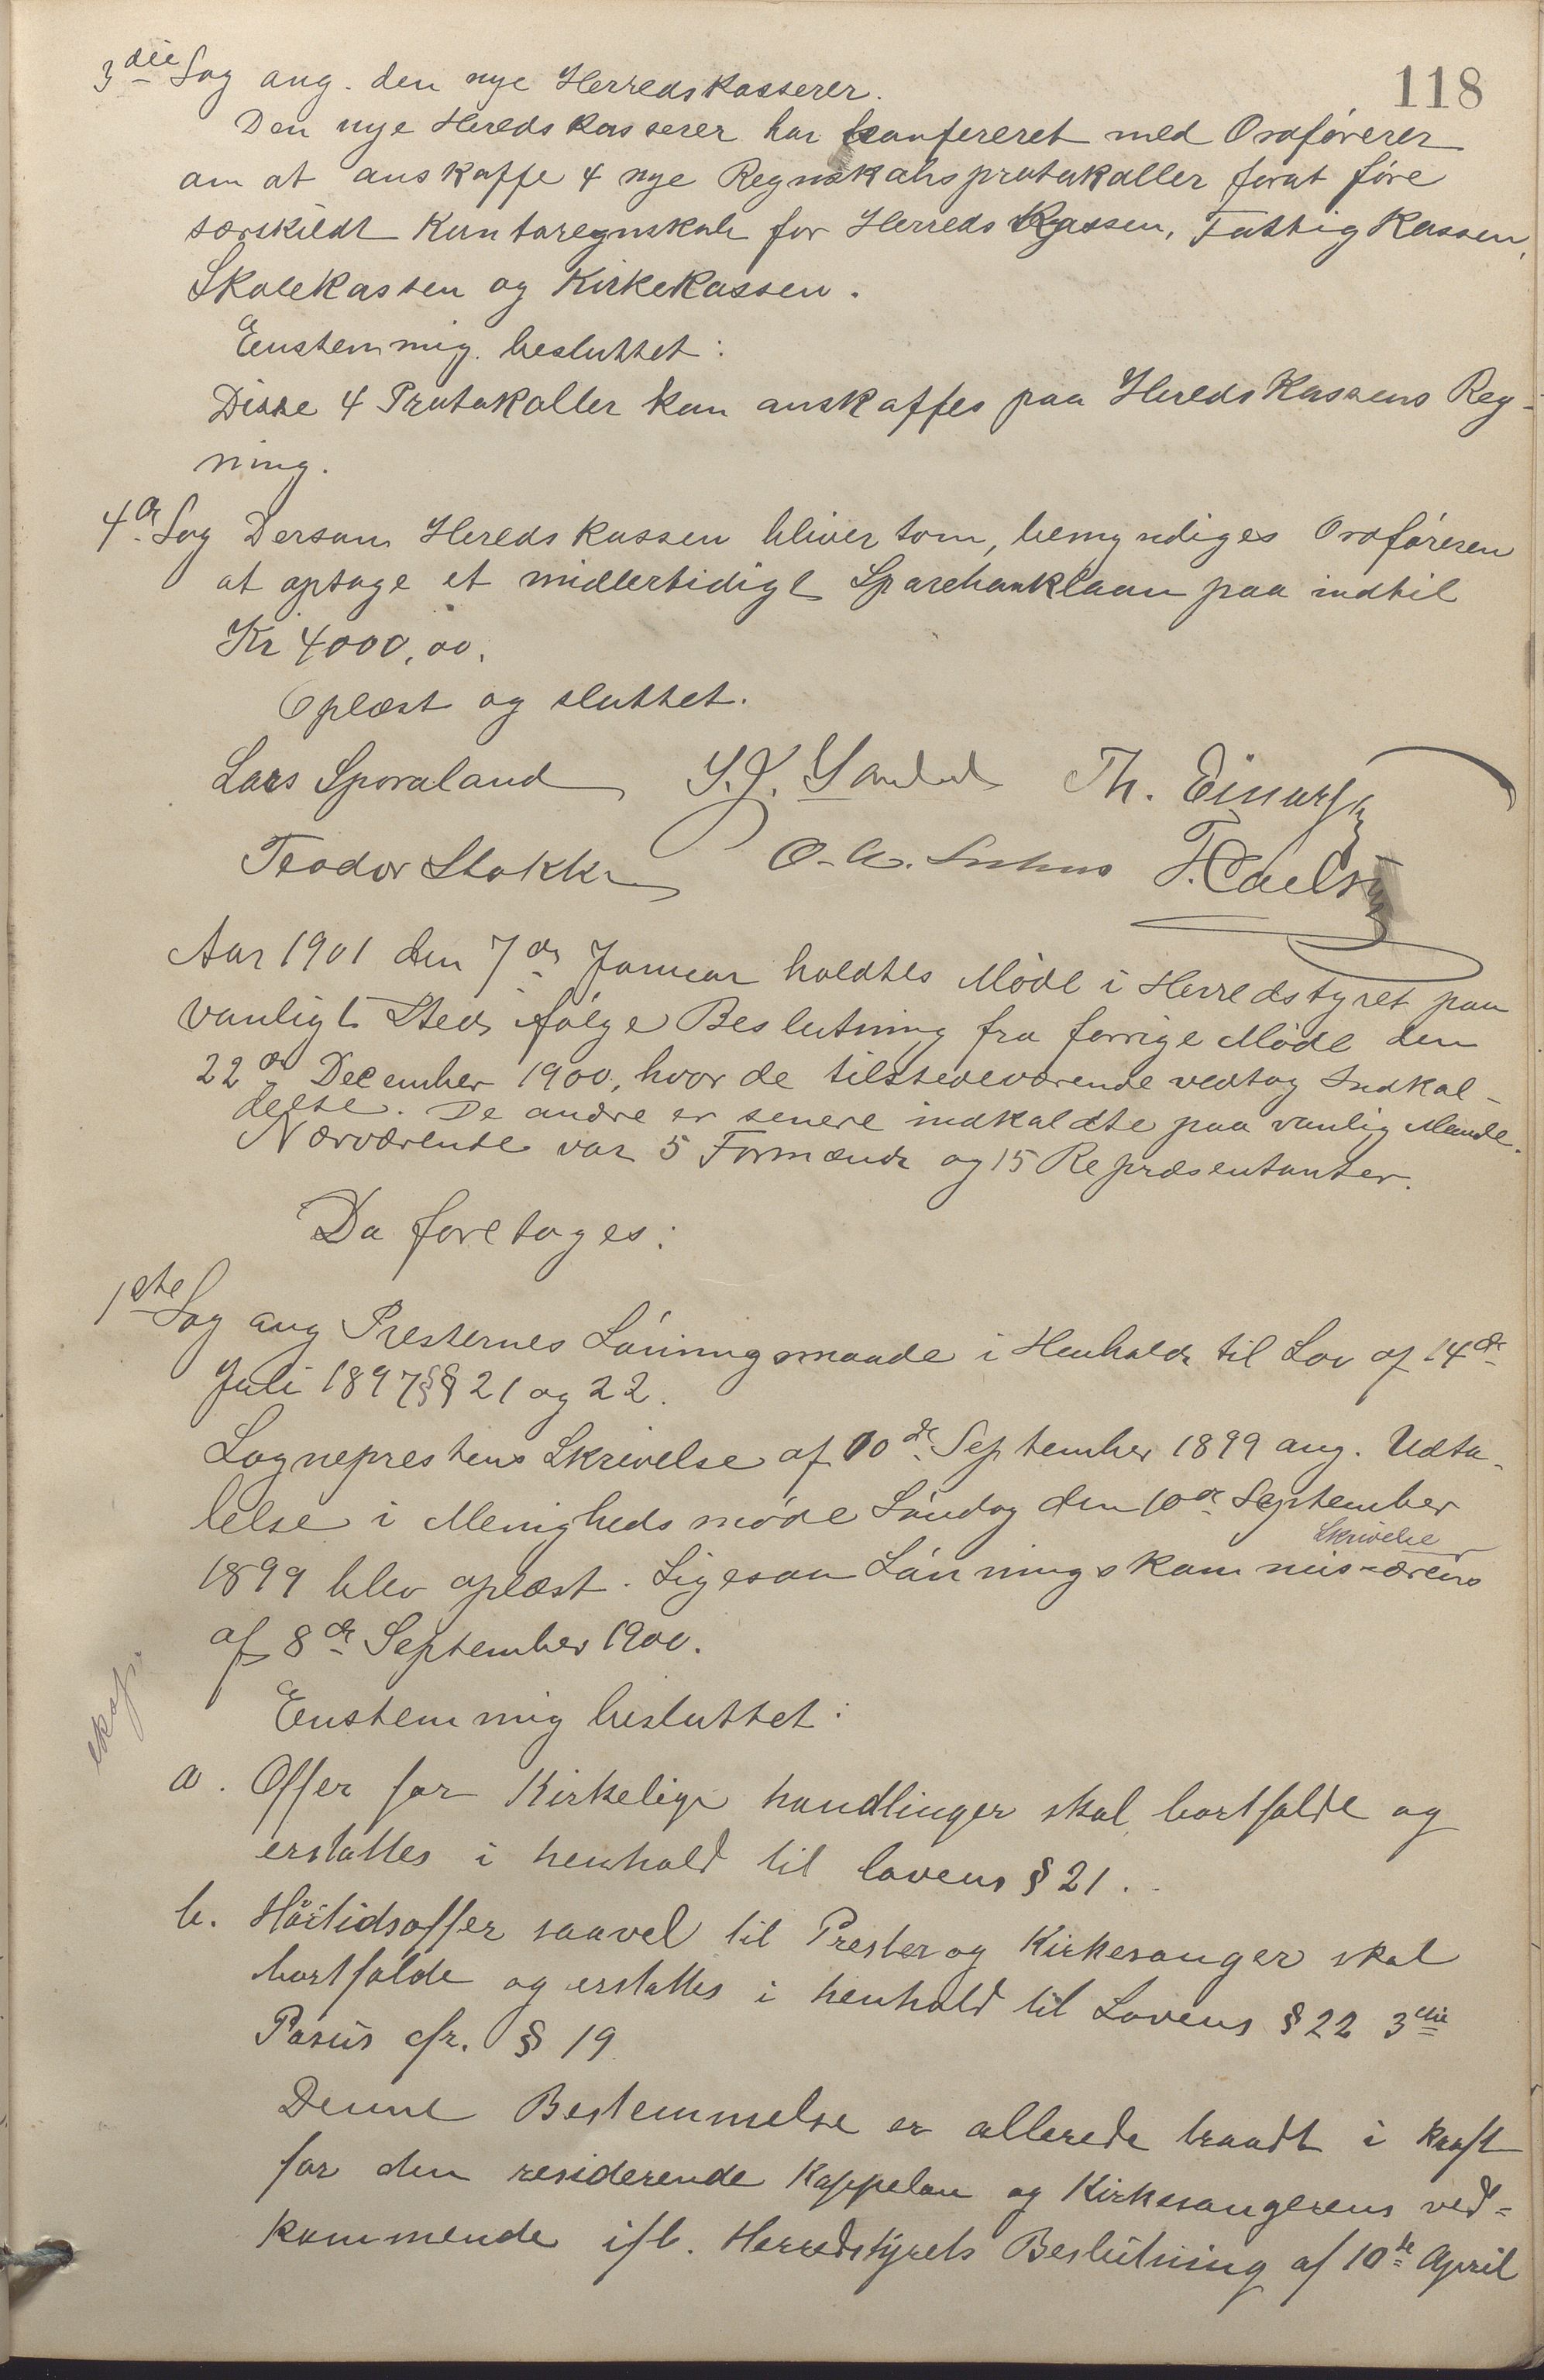 118
3die Sag ang. den nye Herredskasserer.
Den nye Heredskasserer har konfereret med Ordförerer
om at anskaffe 4 nye Regnskabsprotokoller forat före
særskildt Kontoregnskab for Herredskassen, Fattigkassen,
Skolekassen og Kirkekassen.
Enstemmig besluttet:
Disse 4 Protokoller kan anskaffes paa Heredskassens Reg-
ning.
4de Sag Dersom Heredskassen bliver tom, bemyndiges Ordföreren
at optage et midlertidigt Sparebanklaan paa indtil
Kr 4000,00.
Oplæst og sluttet.
Lars Sporaland S. J. Th. Einarsen
Teodor Stokka O. A.
Aar 1901 den 7de Januar holdtes Möde i Herredstyret paa
vanligt Sted ifölge Beslutning fra forrige Möde den
22de December 1900, hvor de tilstedeværende vedtog Indkal-
delse. De andre er senere indkaldte paa vanlig Maade.
Nærværende var 5 Formænd og 15 Repræsentanter.
Da foretoges:
1ste Sag ang Presternes Lönningsmaade i Henhold til Lov af 14de
Juli 1897 §§ 21 og 22.
Sogneprestens Skrivelse af 10de September 1899 ang. Udta-
lelse i Menighedsmöde Söndag den 10de September
1899 blev oplæst. Ligesaa Lönningskommisærens Skrivelse
af 8de September 1900.
eksp.
Enstemmig besluttet:
a. Offer for Kirkelige handlinger skal bortfalde og
erstattes i henhold til lovens § 21.
b. Höitidsoffer saavel til Prester og Kirkesanger skal
bortfalde og erstattes i henhold til Lovens § 22 3die
Pasus cfr. § 19
Denne Bestemmelse er allerede traadt i kraft
for den residerende Kappelan og Kirkesangerens ved=
kommende ifl. Herredstyrets Beslutning af 10de April